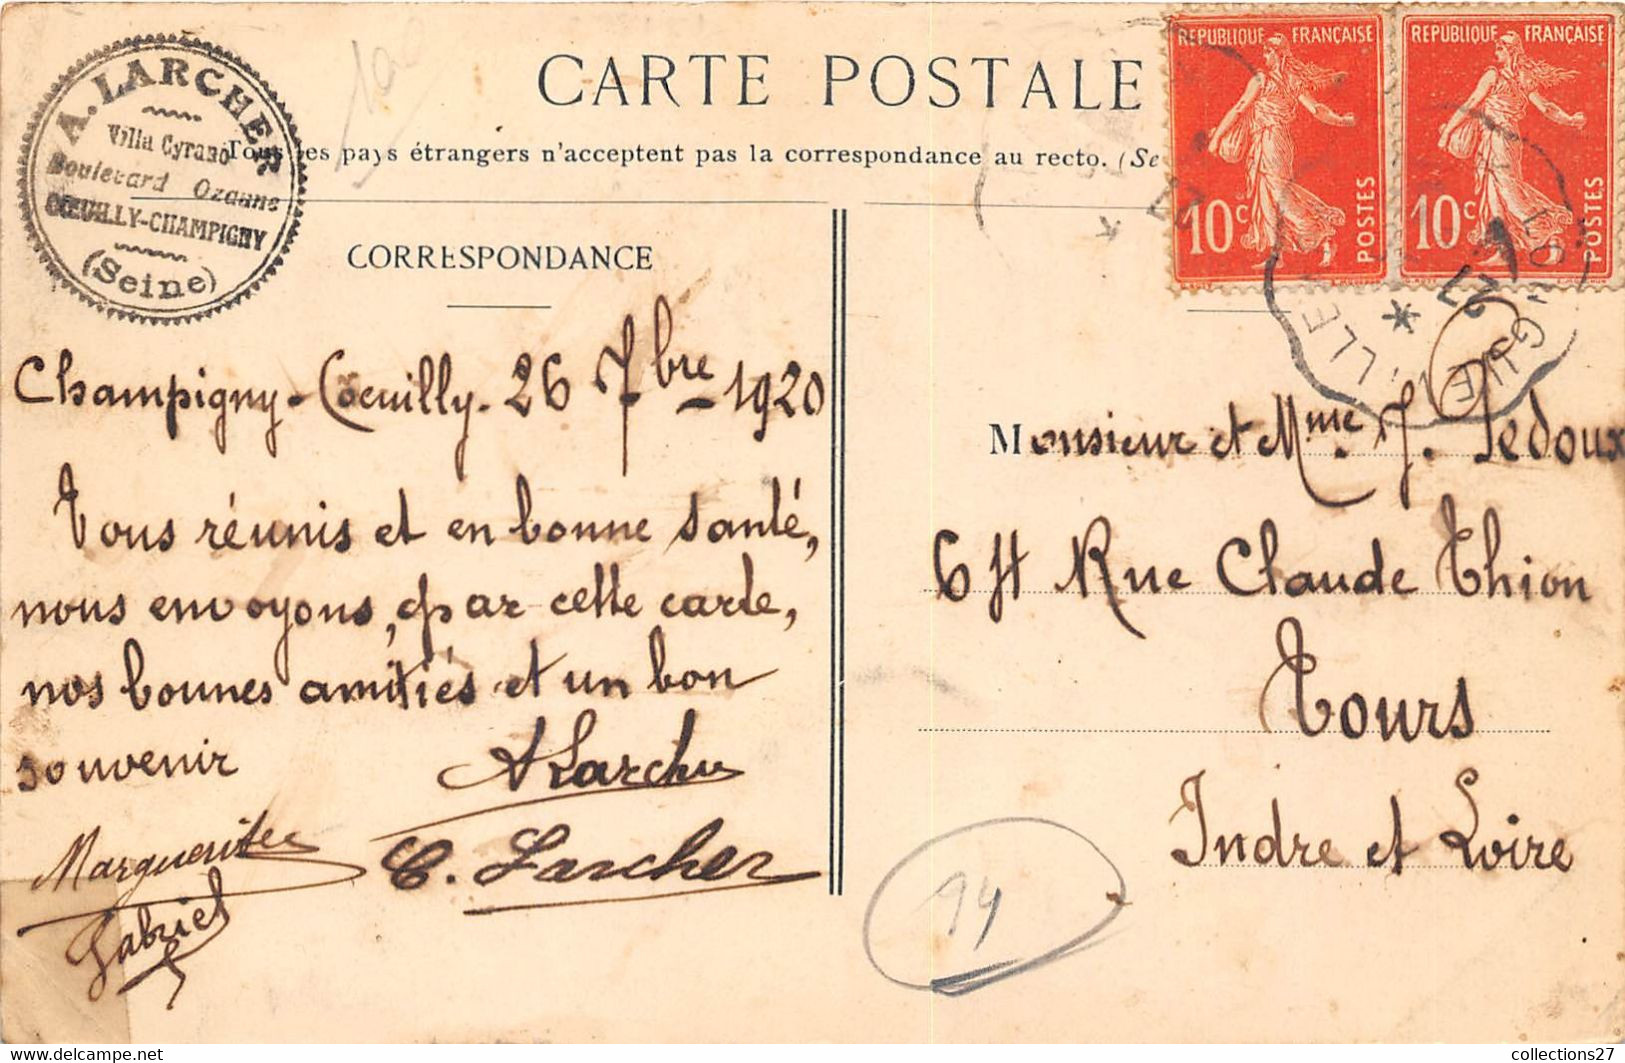 A. LARCHER
Villa Cyrano
Boulevard Ozanne
CŒUILLY-CHAMPIGNY
(Seine)
CARTE POSTALE
Tous les pays étrangers n'acceptent pas la correspondance au recto. (Se
RÉPUBLIQUE FRANÇAISE
10c
POSTES
RÉPUBLIQUE FRANÇAISE
10c
POSTES
27
27
CORRESPONDANCE
Champigny-Coeuilly. 26 7bre 1920
Tous réunis et en bonne santé,
nous envoyons, par cette carte,
nos bonnes amitiés et un bon
souvenir
ALarcher
Marguerite
C. Larcher
Gabriel
Monsieur et Mme J. Ledoux
64 Rue Claude Thion
Tours
Indre et Loire
14
collections27